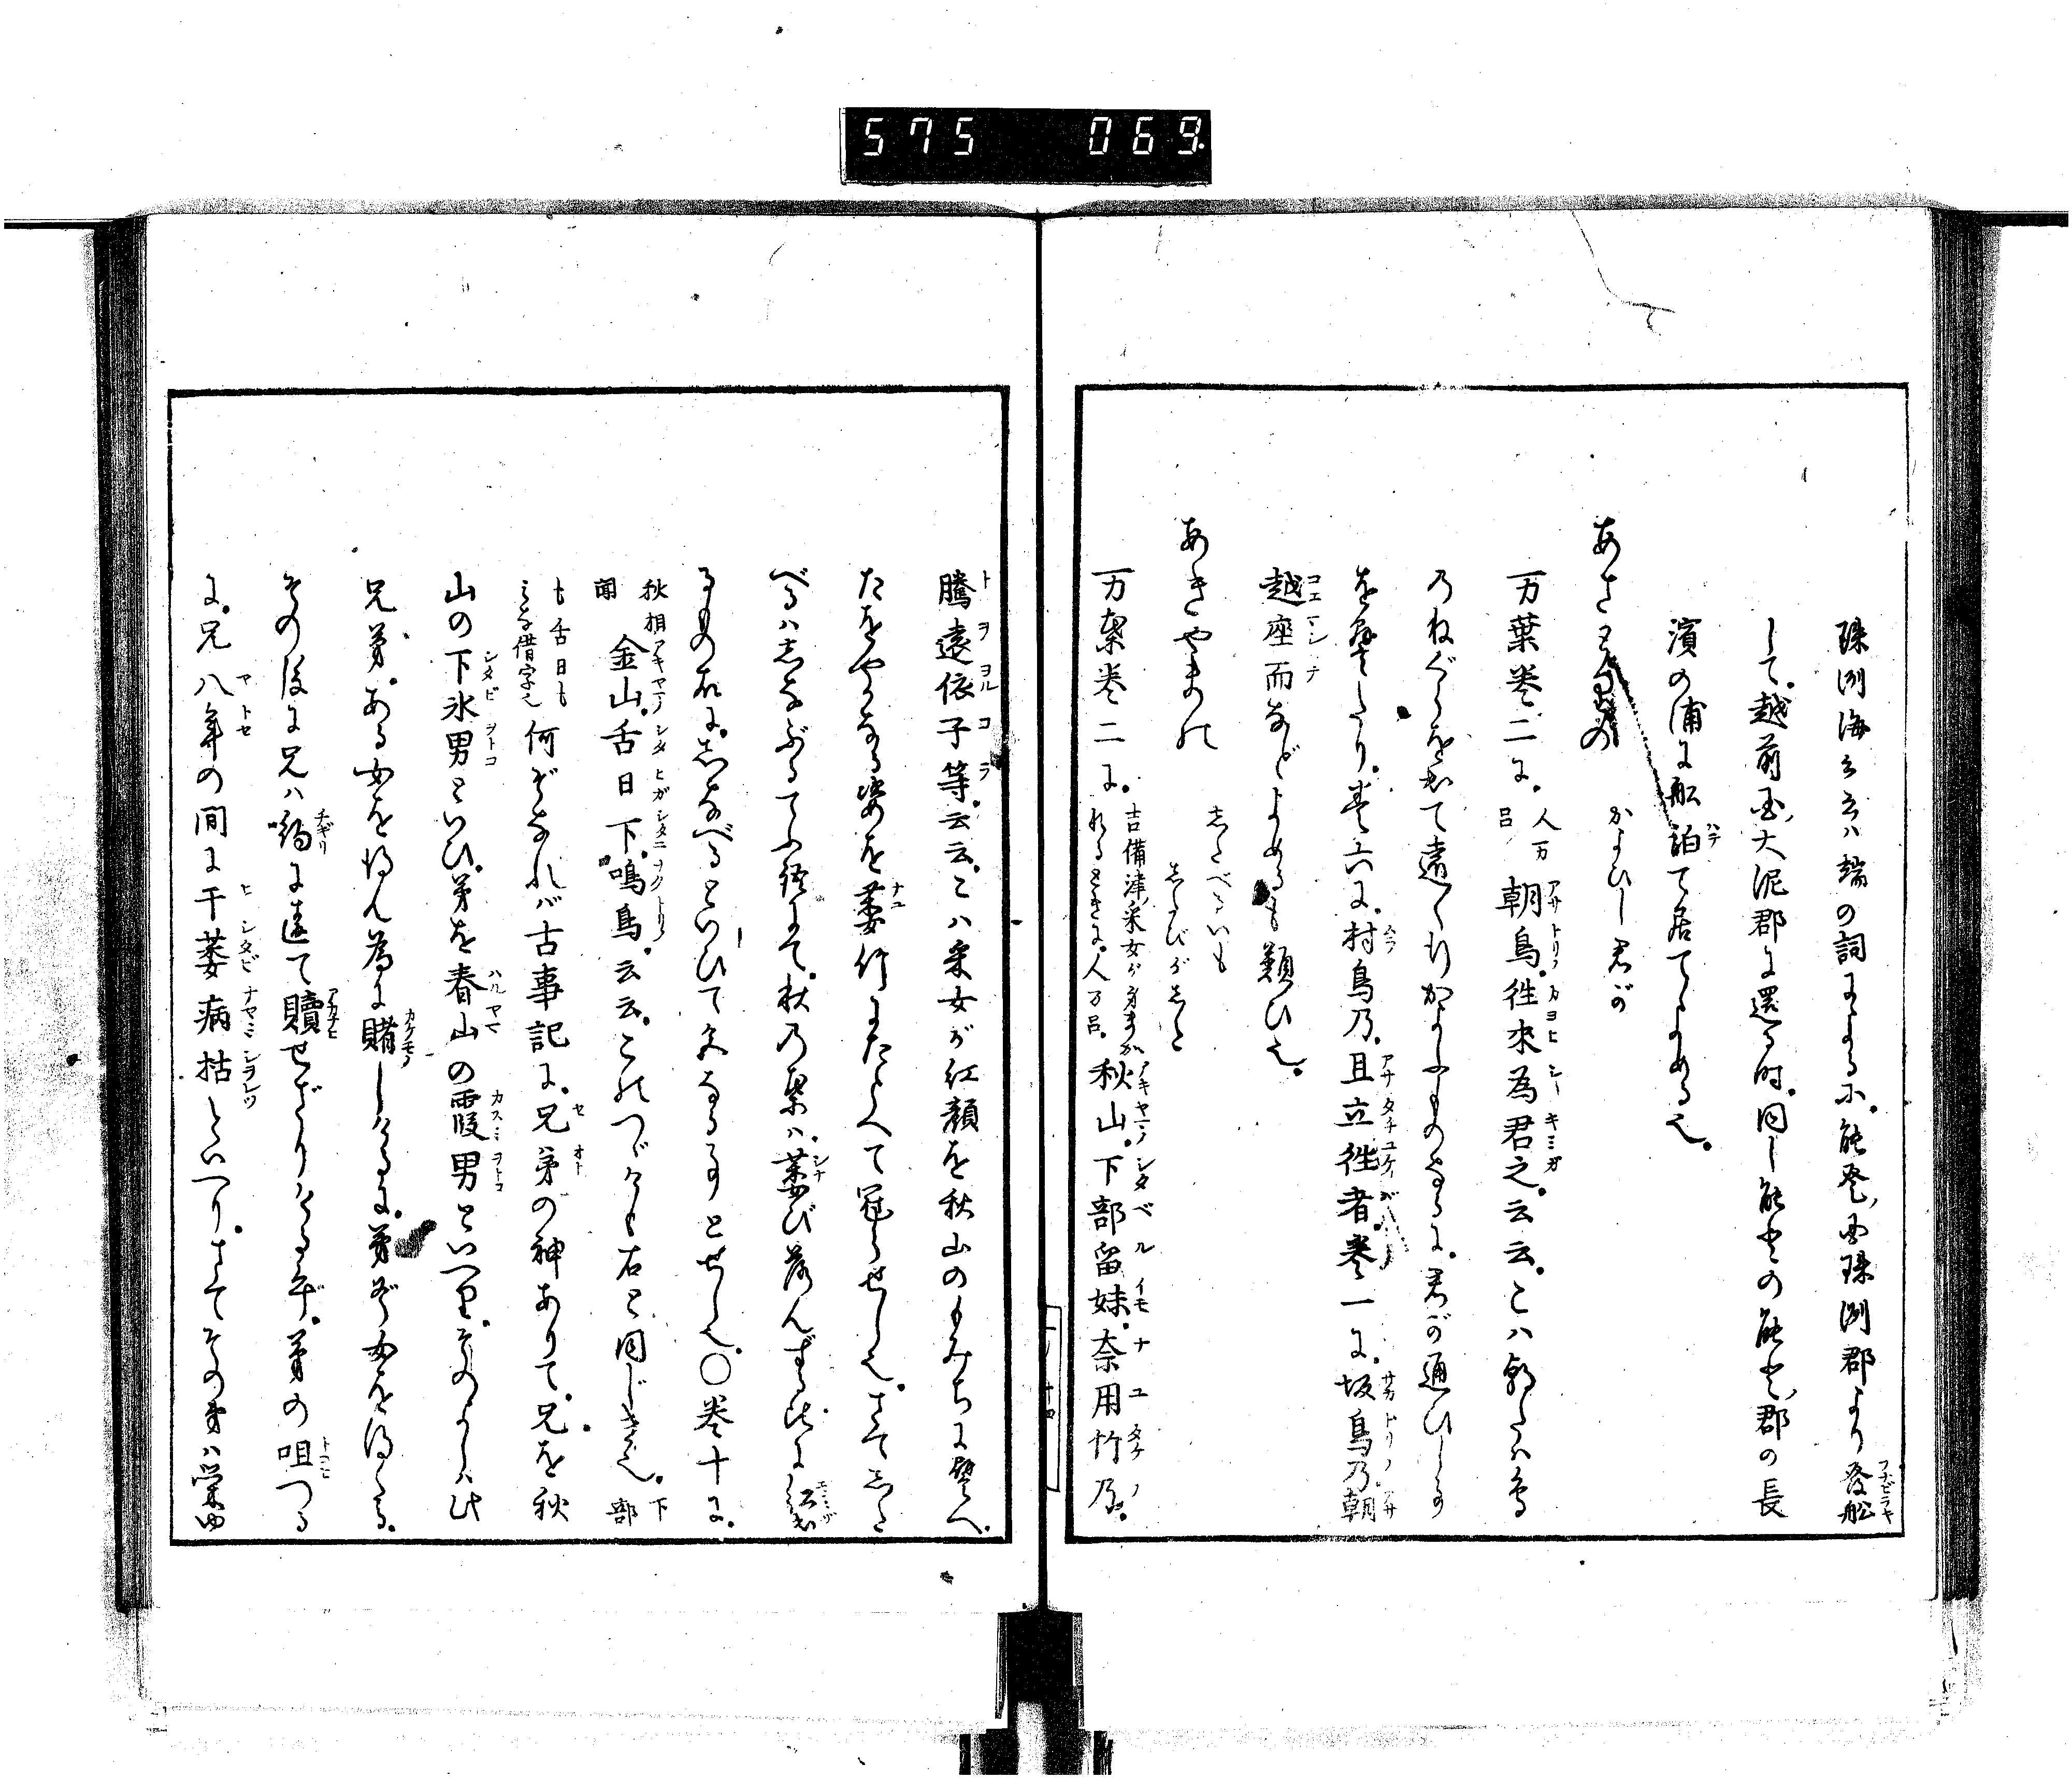 575 069
珠洲海云云ハ端の詞によるに。能登国珠洲郡より発舩
して。越前国大泥郡に還る時。同し能登の能登郡の長
濱の浦に舩泊て居てよめる也。
あさとりの
かよひし君が
万葉巻二に。人万呂朝鳥。徃来為君之。云云。こハ朝には鳥
のねぐらを出て遠く行かよふものなるに。君が通ひしを
を譬たり。巻六に。村鳥乃。且立徃者。巻一に。坂鳥乃朝
越座而などよめるも類ひ也。
あきやまの
したべるいも
したびがした
万葉巻二に。吉備津采女が身まかれるときに。人万呂。秋山。下部留妹。奈用竹乃。
騰遠依子等。云云。こハ采女が紅顔を秋山のもみちに譬へ。
たをやかなる姿を萎竹にたとへて冠らせし也。さてした
べるハしなぶるてふ語にて。秋乃葉ハ。萎び落んずる時に
るもの故に。したべるといひて
秋相聞金山。舌日下。鳴鳥。云云。このつゞけも右と同じき也。下部
も舌日もミな借字也何ぞなれバ古事記に。兄弟の神ありて。兄を秋
山の下氷男といひ。弟を春山の霞男といへり。そのよしハ此
兄弟。ある女を得ん為に賭しけるに。弟ぞ女を得たる。
その後に兄ハ約に違て贖せざりければ。弟の咀つる
に。兄八年の間に干萎病枯といへり。さてその弟ハ栄ゆ